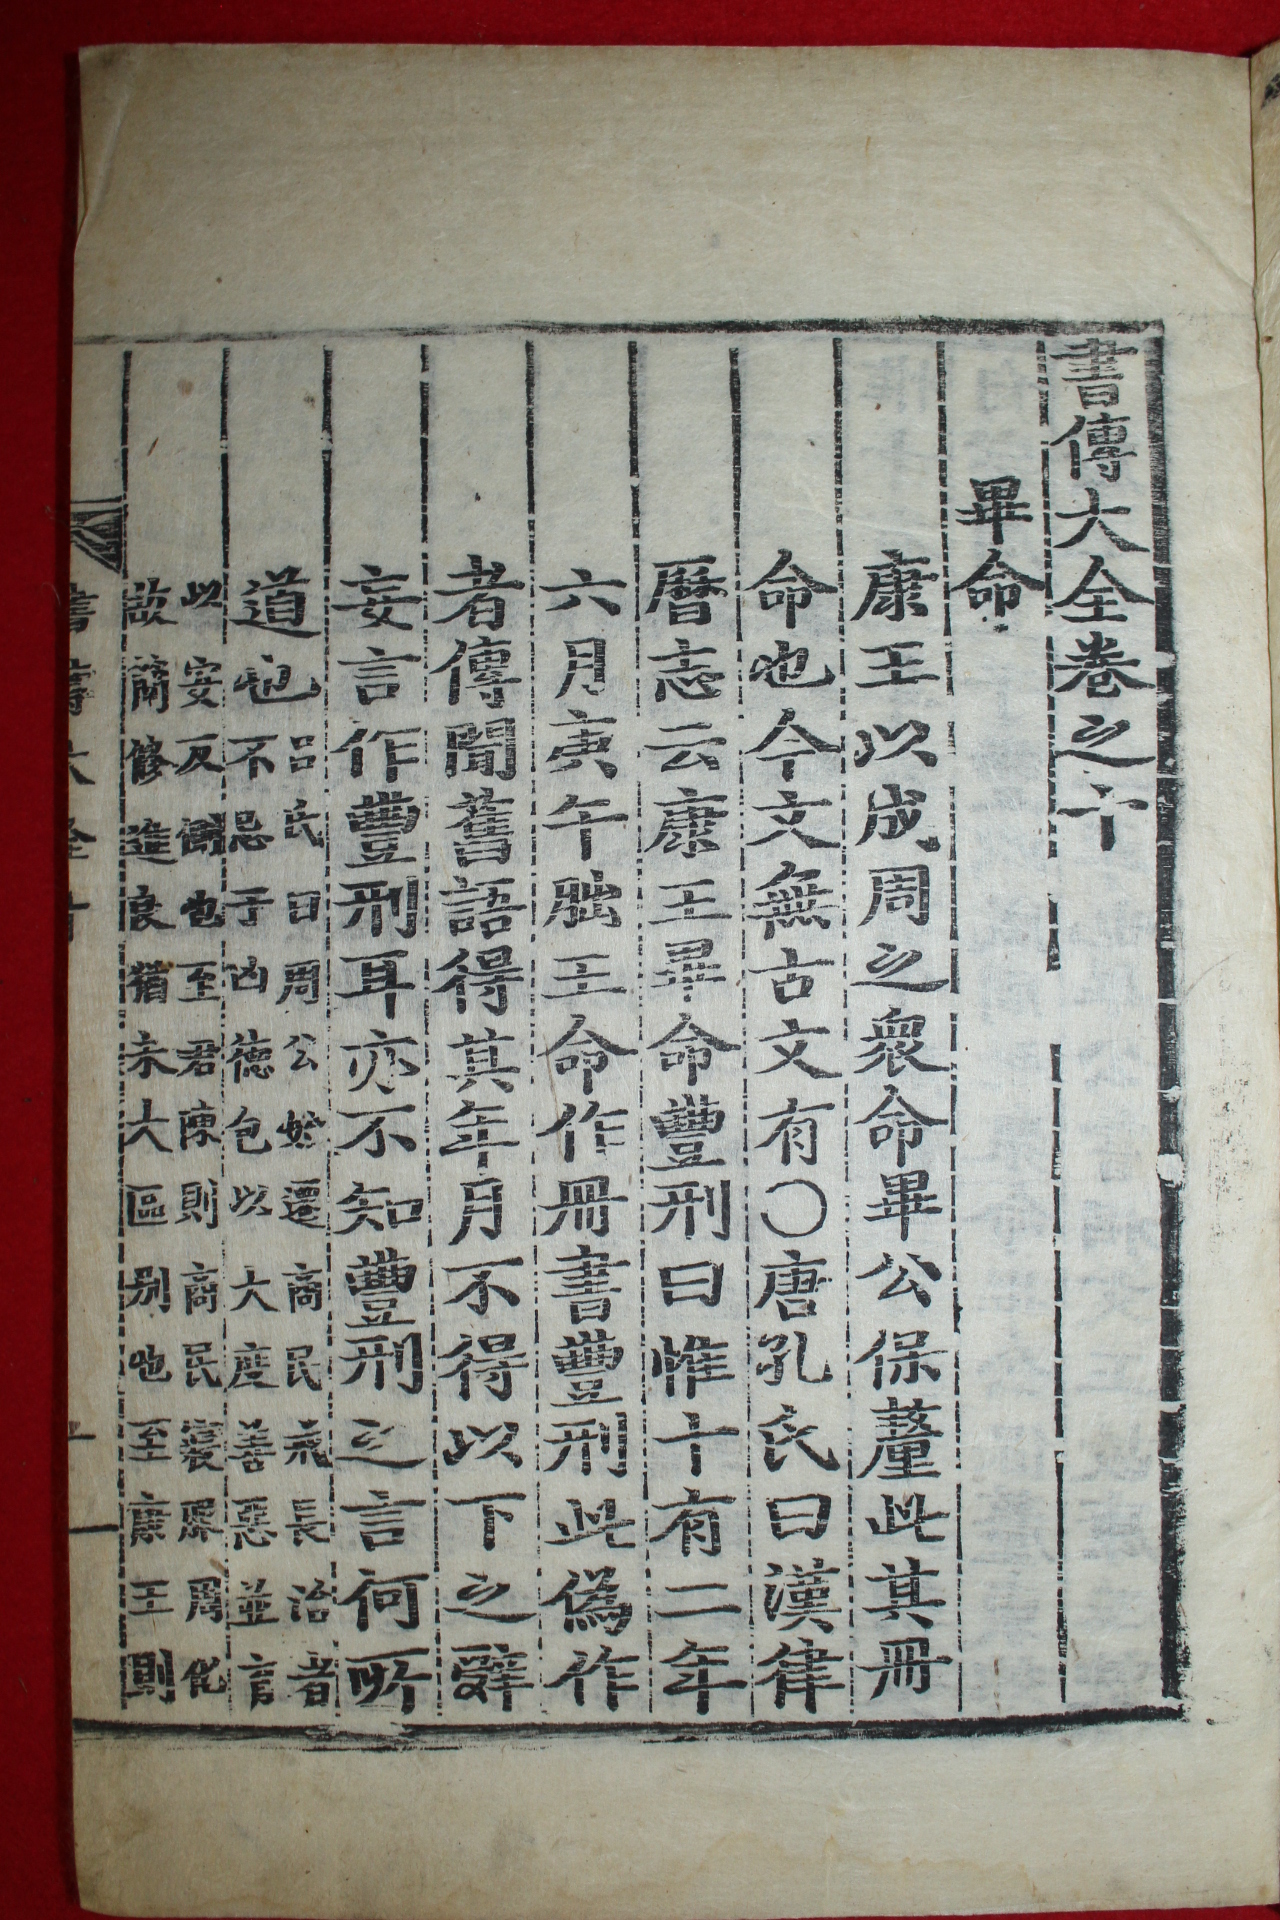 書傳大全卷之十
畢命
康王以成周之衆命畢公保釐此其冊
命也今文無古文有○唐孔氏曰漢律
曆志云康王畢命豐刑曰惟十有二年
六月庚午朏王命作冊書豐刑此僞作
者傳聞舊語得其年月不得以下之辭
妄言作豐刑耳亦不知豐刑之言何所
道也
呂氏曰周公始遷商民戒長治者
不忌于凶德包以大度善惡並言
以安反側也至君陳則商民寖染周化
故簡修進良猶未大區別也至康王則
書傳大全
一